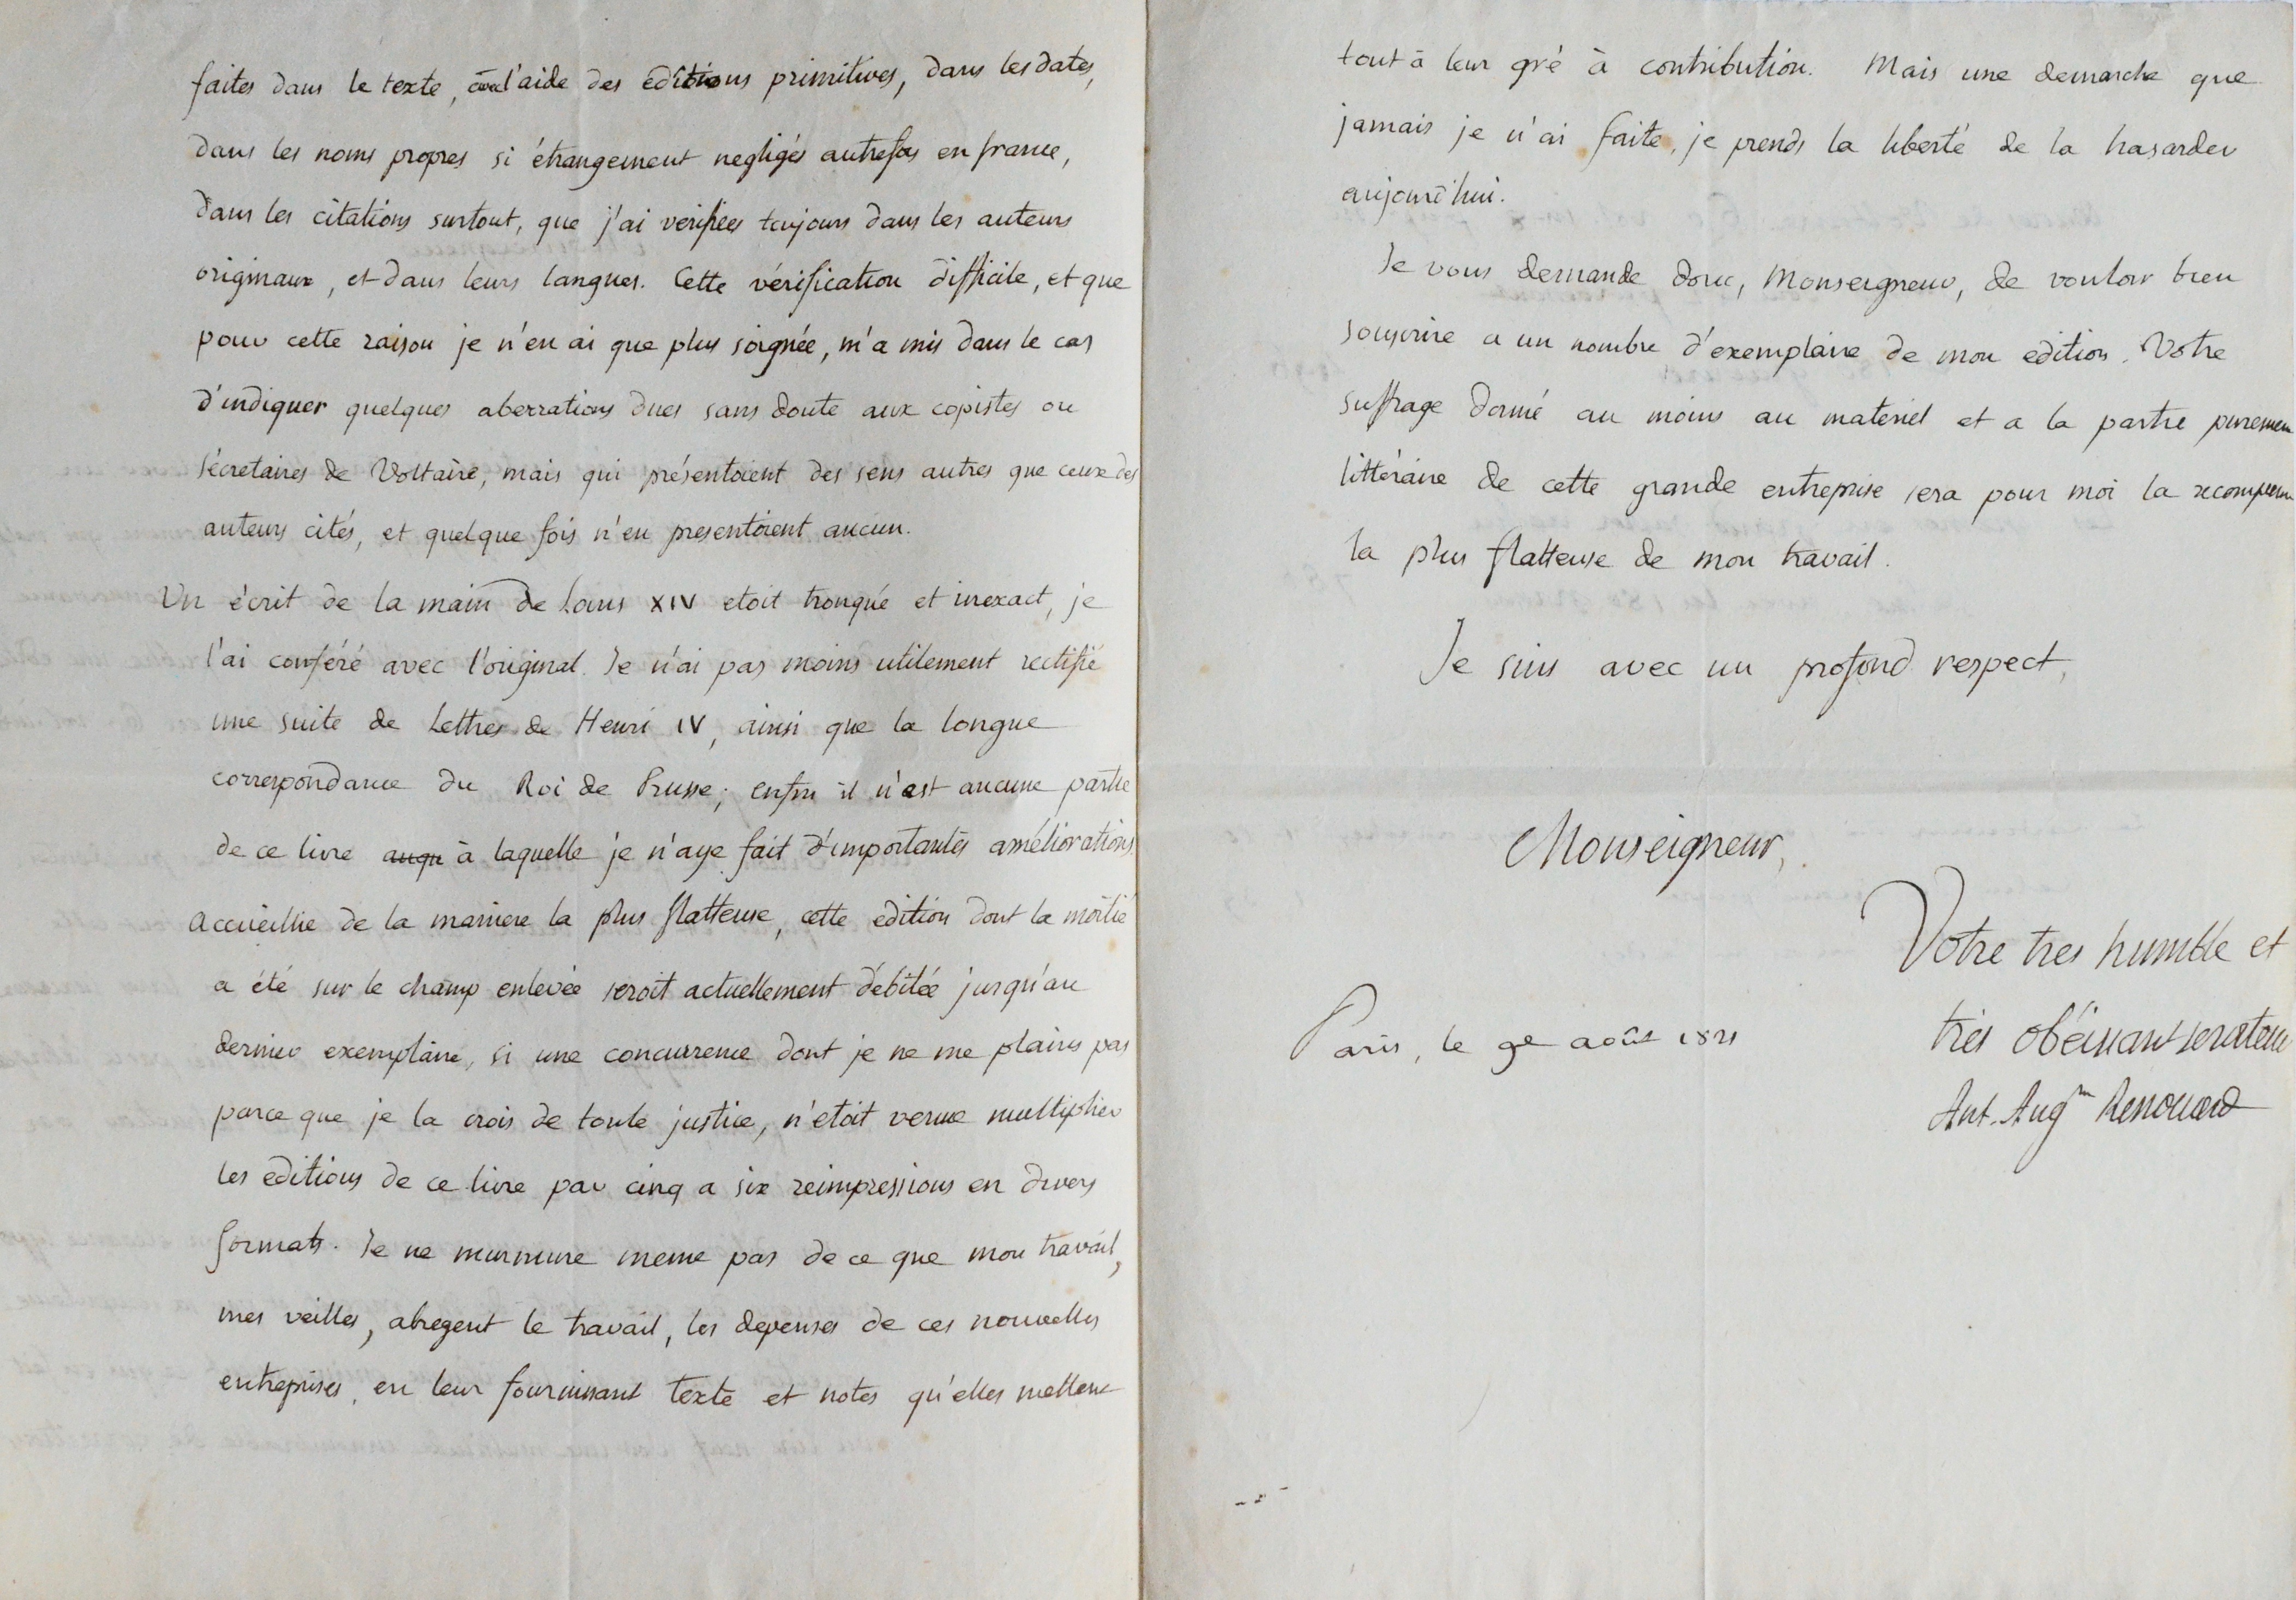 faites dans le texte, avec l'aide des editions primitives, dans les dates,
dans les noms propres si étrangement negligés autrefois en france,
dans les citations surtout, que j'ai verifiées toujours dans les auteurs
originaux, et dans leurs langues. Cette vérification difficile, et que
pour cette raison je n'en ai que plus soignée, m'a mis dans le cas
d'indiquer quelques aberrations dues sans doute aux copistes ou
sécretaires de Voltaire, mais qui présentoient des sens autres que ceux des
auteurs cités, et quelque fois n'en presentoient aucun.
Un écrit de la main de Louis XIV etoit tronqué et inexact, je
l'ai conféré avec l'original. Je n'ai pas moins utilement rectifié
une suite de Lettres de Henri IV, ainsi que la longue
correspondance du Roi de Prusse; enfin il n'est aucune partie
de ce livre auqu à laquelle je n'aye fait d'importantes améliorations.
Accueillie de la maniere la plus flatteuse, cette edition dont la moitié
a été sur le champ enlevée seroit actuellement débitée jusqu'au
dernier exemplaire, si une concurrence dont je ne me plains pas
parce que je la crois de toute justice, n'etoit venue multiplier
les editions de ce livre par cinq a six reimpressions en divers
formats. Je ne murmure meme pas de ce que mon travail,
mes veilles, abregent le travail, les depenses de ces nouvelles
entreprises, en leur fournissant texte et notes qu'elles mettent
tout à leur gré à contribution. Mais une demarche que
jamais je n'ai faite, je prends la liberté de la hasarder
aujourd'hui.
Je vous demande donc, Monseigneur, de vouloir bien
souscrire a un nombre d'exemplaire de mon edition. Votre
suffrage donné au moins au materiel et a la partie purement
littéraire de cette grande entreprise sera pour moi la recompense
la plus flatteuse de mon travail.
Je suis avec un profond respect,
Monseigneur,
Votre tres humble et
très obéissant serviteur
Paris, le 9e août 1821
Ant. Aug^in Renouard